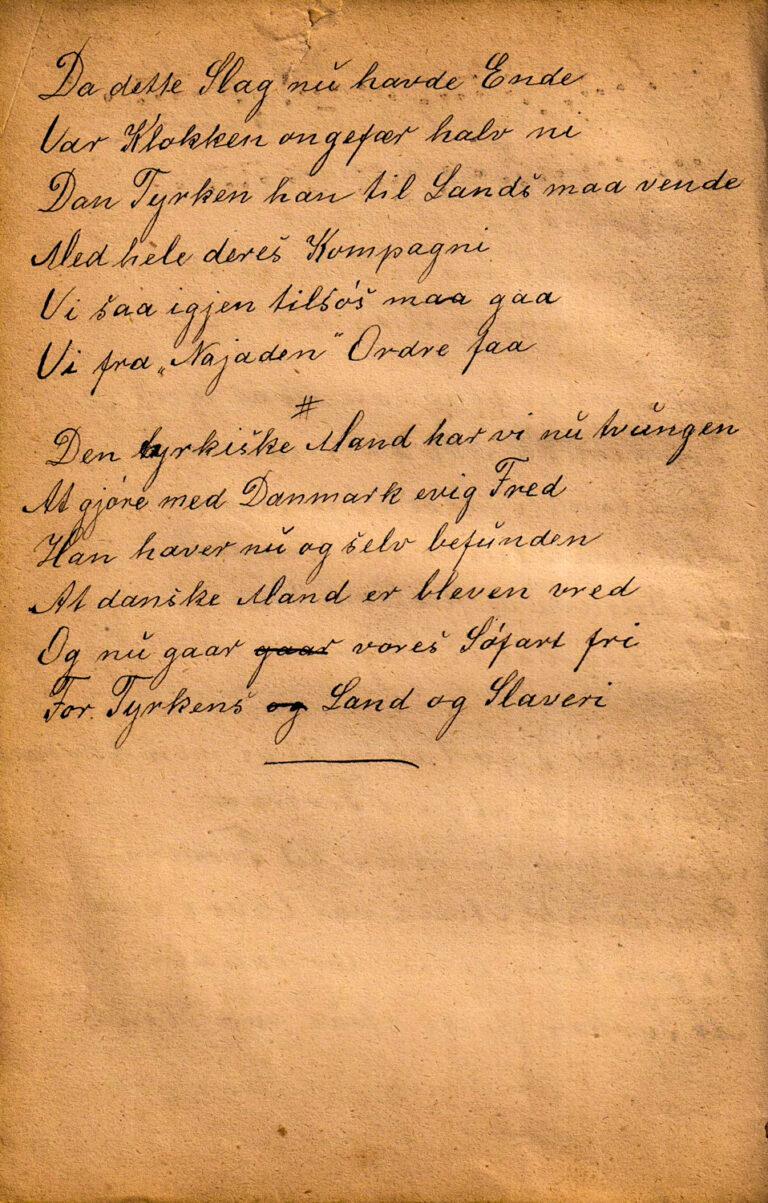 Da dette Slag nu havde Ende
Var Klokken ongefær halv ni
Dan Tyrken han til Lands maa vende
Med hele deres Kompagni
Vi saa igjen tilsøs maa gaa
Vi fra „Najaden" Ordre faa
#
Den tyrkiske Mand har vi nu tvungen
At gjøre med Danmark evig Fred
Han haver nu og selv befunden
At danske Mand er bleven vred
Og nu gaar gaar vores Søfart fri
For Tyrkens og Land og Slaveri